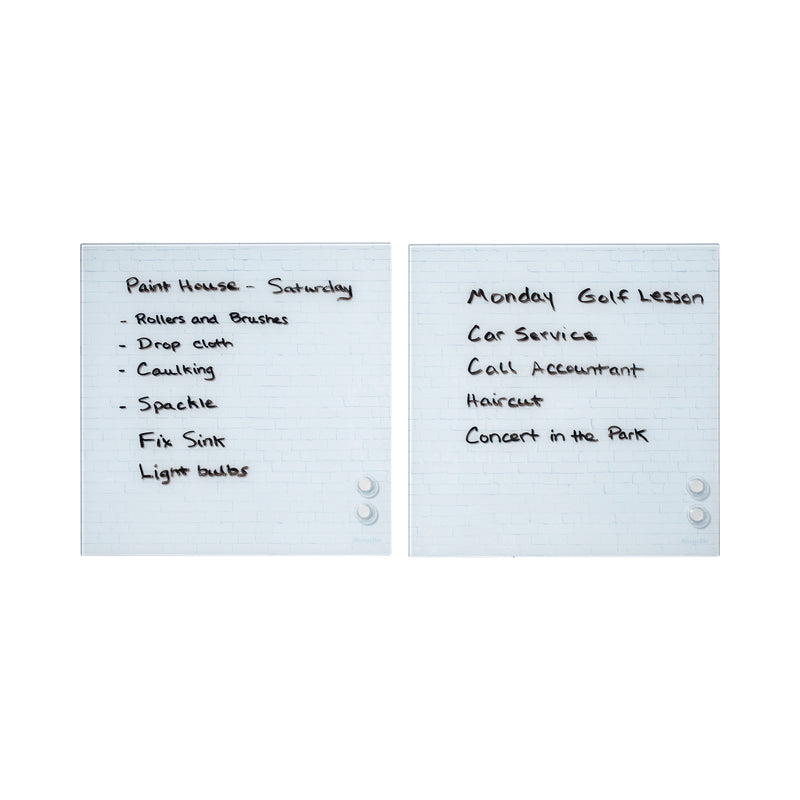 Paint House - Saturday
- Rollers and Brushes
- Drop cloth
- Caulking
- Spackle
Fix Sink
Light bulbs
Monday Golf Lesson
Car Service
Call Accountant
Haircut
Concert in the Park